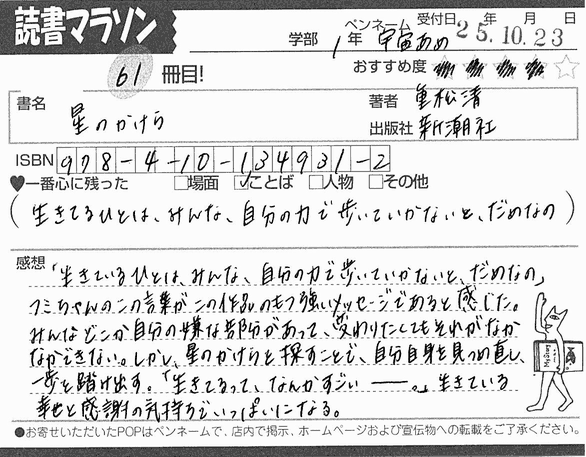 読書マラソン
学部 1年 ペンネーム 宇宙あめ 受付日 25年10月23日
61 冊目!
おすすめ度 ★★★★☆
書名 星のかけら
著者 重松清
出版社 新潮社
ISBN 978-4-10-134931-2
♥一番心に残った □場面 ☑ことば □人物 □その他
(生きてるひとは、みんな、自分の力で歩いていかないと、だめなの)
感想 「生きているひとは、みんな、自分の力で歩いていかないと、だめなの」
フミちゃんのこの言葉がこの作品のもつ強いメッセージであると感じた。
みんなどこか自分の嫌な部分があって、変わりたくしてもそれがなか
なかできない。しかし、星のかけらを探すことで、自分自身を見つめ直し、
一歩を踏け出す。「生きてるって、なんかすごい――。」生きている
幸せと感謝の気持ちでいっぱいになる。
●お寄せいただいたPOPはペンネームで、店内で掲示、ホームページおよび宣伝物への転載をご了承ください。